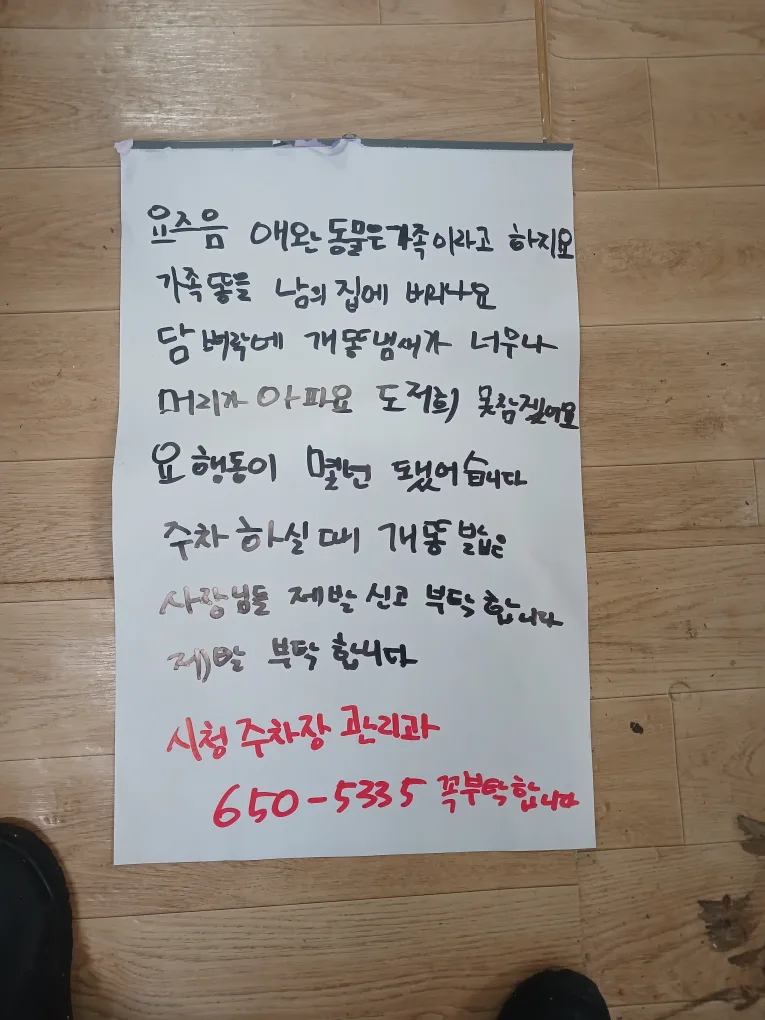 요즈음 애완동물은 가족이라고 하지요
가족똥을 남의 집에 버리나요
담 벼락에 개똥냄새가 너무나
머리가 아파요 도저희 못참겠어요
요 행동이 몇번 됐어습니다
주차 하실때 개똥 밟은
사람님들 제발 신고 부탁 합니다
제발 부탁 합니다
시청 주차장 관리과
650-5335 꼭부탁합니다